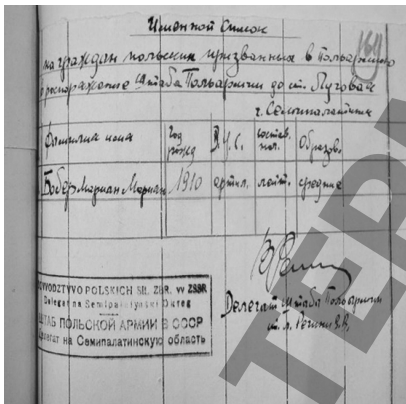 Именной список
164
на граждан польских призванных в Польармию
в распоряжение Штаба Польармии до ст. Луговая
г. Семипалатинск
Фамилия имя
Год рожд
В.У.С.
состав.
Образов.
Бобёр Мариан Мариан
1910
артил.
лейт.
среднее
Делегат штаба Польармии
DOWODZTWO POLSKICH SIL ZBR. W ZSSR
Delegat na Semipalatynski Okreg
ШТАБ ПОЛЬСКОЙ АРМИИ В СССР
Делегат на Семипалатинскую область
TERI